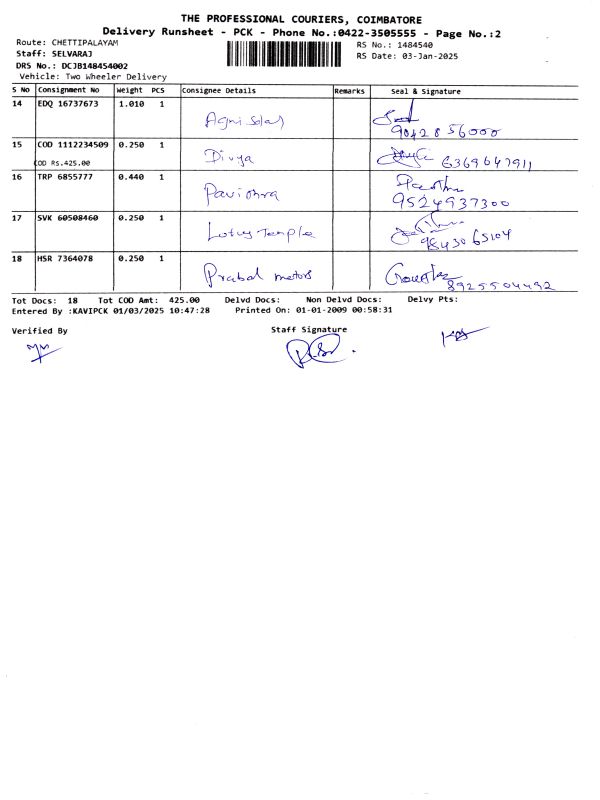 THE PROFESSIONAL COURIERS, COIMBATORE
Delivery Runsheet - PCK - Phone No.:0422-3505555 - Page No.:2
Route: CHETTIPALAYAM RS No.: 1484540
Staff: SELVARAJ RS Date: 03-Jan-2025
DRS No.: DCJB148454002
Vehicle: Two Wheeler Delivery
S No Consignment No Weight PCS Consignee Details Remarks Seal & Signature
14 EDQ 16737673 1.010 1
Agni Solar
9842856000
15 COD 1112234509 0.250 1
COD RS.425.00 Divya 6369647911
16 TRP 6855777 0.440 1
Pavithra 9524937300
17 SVK 60508460 0.250 1
Lotus Temple 9843065104
18 HSR 7364078 0.250 1
Prabal motors 8925504492
Tot Docs: 18 Tot COD Amt: 425.00 Delvd Docs: Non Delvd Docs: Delvy Pts:
Entered By :KAVIPCK 01/03/2025 10:47:28 Printed On: 01-01-2009 00:58:31
Verified By Staff Signature